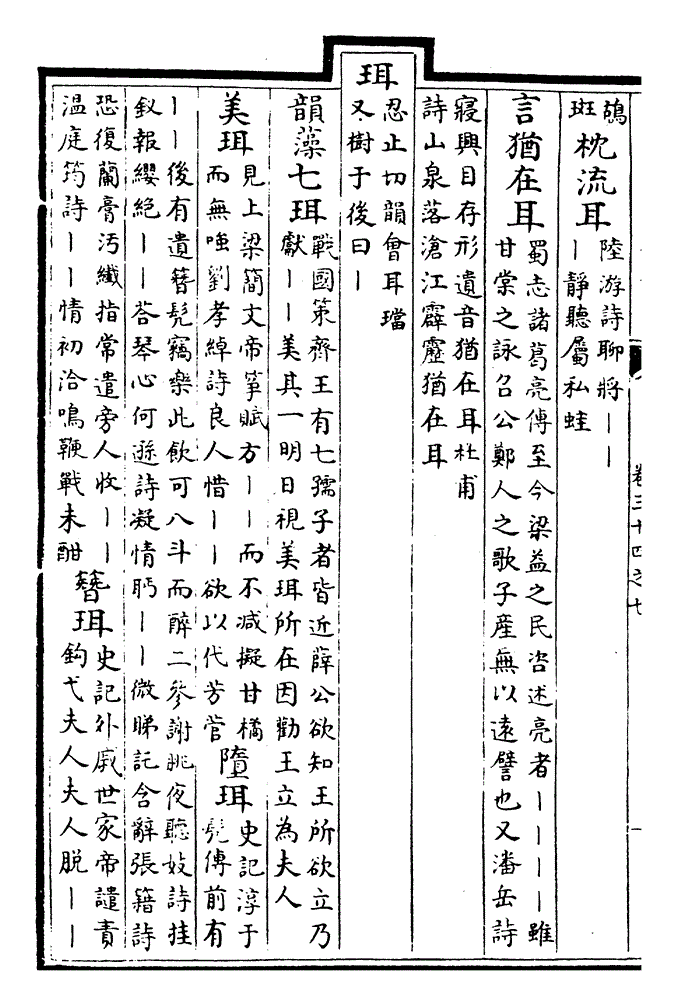 鴣
斑
枕流耳
陸游詩聊將丨丨
丨靜聽屬私蛙
言猶在耳
蜀志諸葛亮傳至今梁益之民咨述亮者丨丨丨丨雖
甘棠之詠召公鄭人之歌子產無以遠譬也又潘岳詩
寢興目存形遺音猶在耳杜甫
詩山泉落滄江霹靂猶在耳
珥
忍止切韻會耳璫
又樹于後曰丨
韻藻七珥
戰國策齊王有七孺子者皆近薛公欲知王所欲立乃
獻丨丨美其一明日視美珥所在因勸王立為夫人
美珥
見上梁簡文帝箏賦方丨丨而不減擬甘橘
而無嗤劉孝綽詩良人惜丨丨欲以代芳菅
墮珥
史記淳于
髡傳前有
丨丨後有遺簪髡竊樂此飲可八斗而醉二參謝朓夜聽妓詩挂
釵報纓絕丨丨荅琴心何遜詩凝情眄丨丨微睇託含辭張籍詩
恐復蘭膏汚纖指常遣旁人收丨丨
温庭筠詩丨丨情初洽鳴鞭戰未酣
簪珥
史記外戚世家帝譴責
鈎弋夫人夫人脱丨丨
卷三十四之七